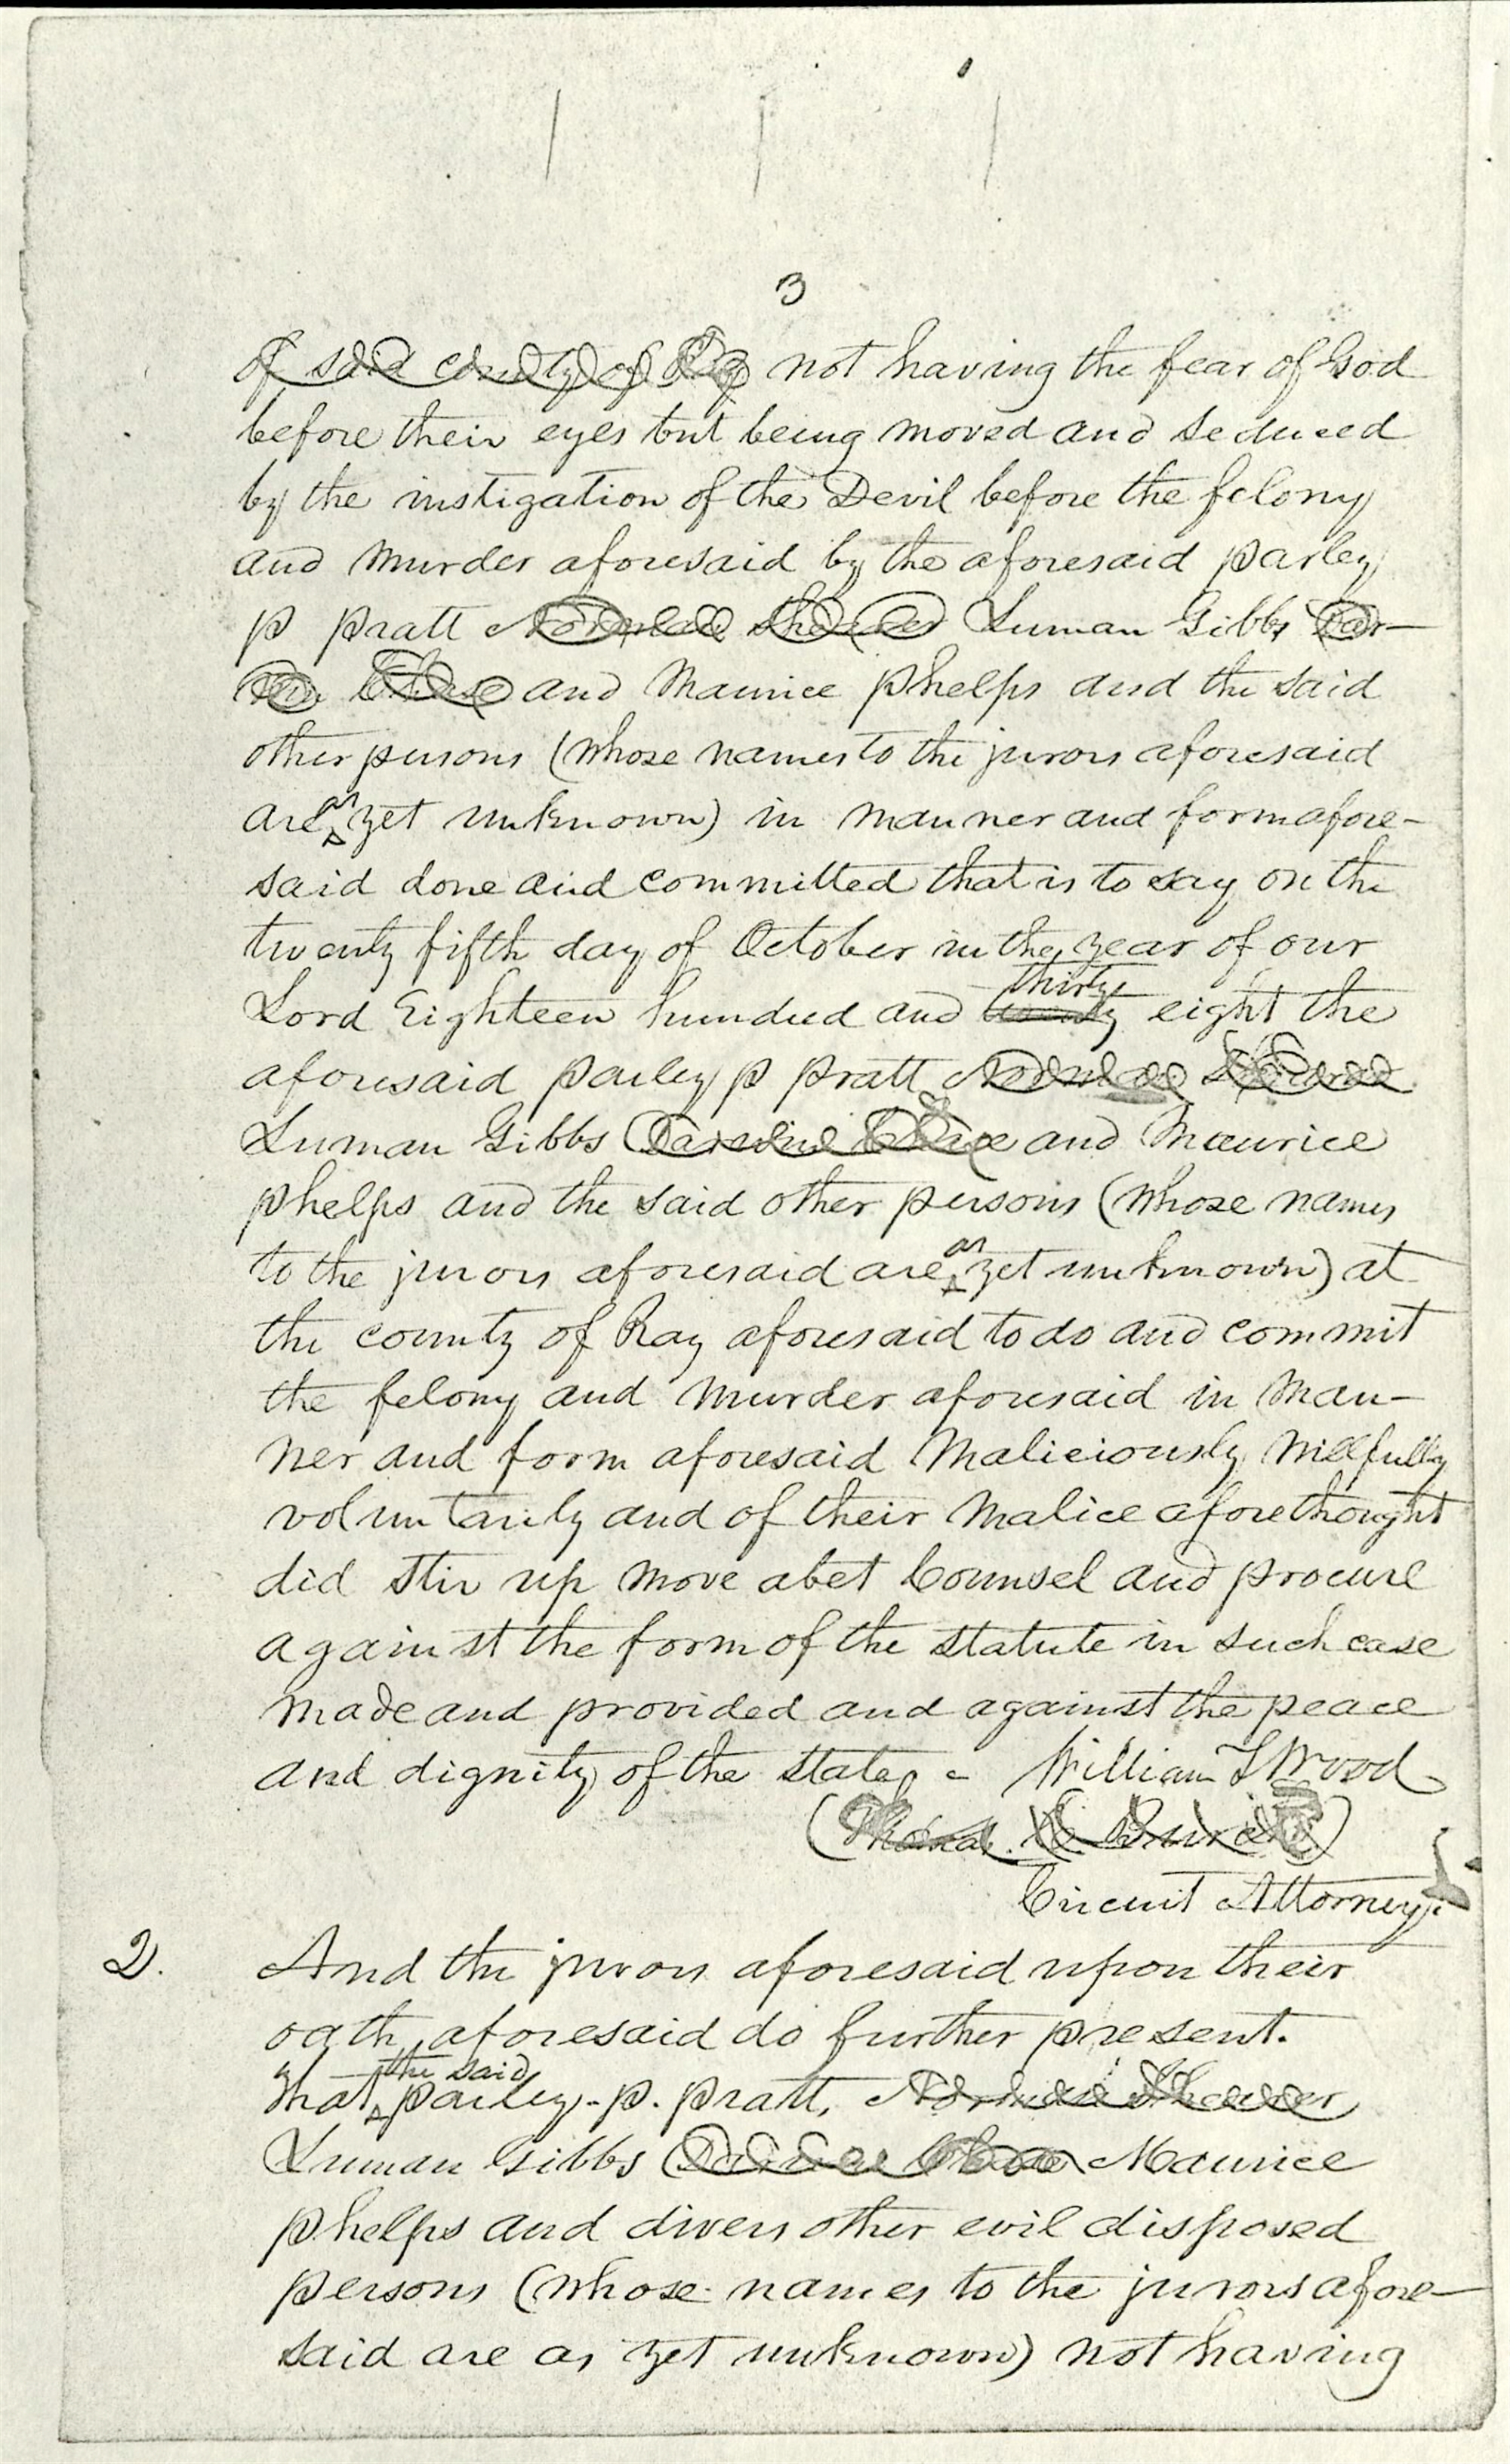 3
of said county of Ray not having the fear of God
before their eyes but being moved and seduced
by the instigation of the Devil before the felony
and Murder aforesaid by the aforesaid parley
p pratt Norman Shearer Luman Gibbs Dar-
win Chase and Maurice phelps and the said
other persons (whose names to the jurors aforesaid
are as yet unknown) in manner and form afore-
said done and committed that is to say on the
twenty fifth day of October in the year of our
Lord Eighteen hundred and twenty thirty eight the
aforesaid parley p pratt Norman Shearer
Luman Gibbs Darwin Chase and Maurice
phelps and the said other persons (whose names
to the jurors aforesaid are as yet unknown) at
the county of Ray aforesaid to do and commit
the felony and murder aforesaid in man-
ner and form aforesaid Maliciously willfully
voluntarily and of their malice aforethought
did stir up move abet Counsel and procure
against the form of the statute in such case
made and provided and against the peace
and dignity of the state - William T Wood
(Thomas C. Burch)
Circuit Attorney.
2. And the jurors aforesaid upon their
oath, aforesaid do further present.
that the said parley. p. pratt, Norman Shearer
Luman Gibbs Darwin Chase Maurice
phelps and divers other evil disposed
persons (whose names to the jurors afore-
said are as yet unknown) not having